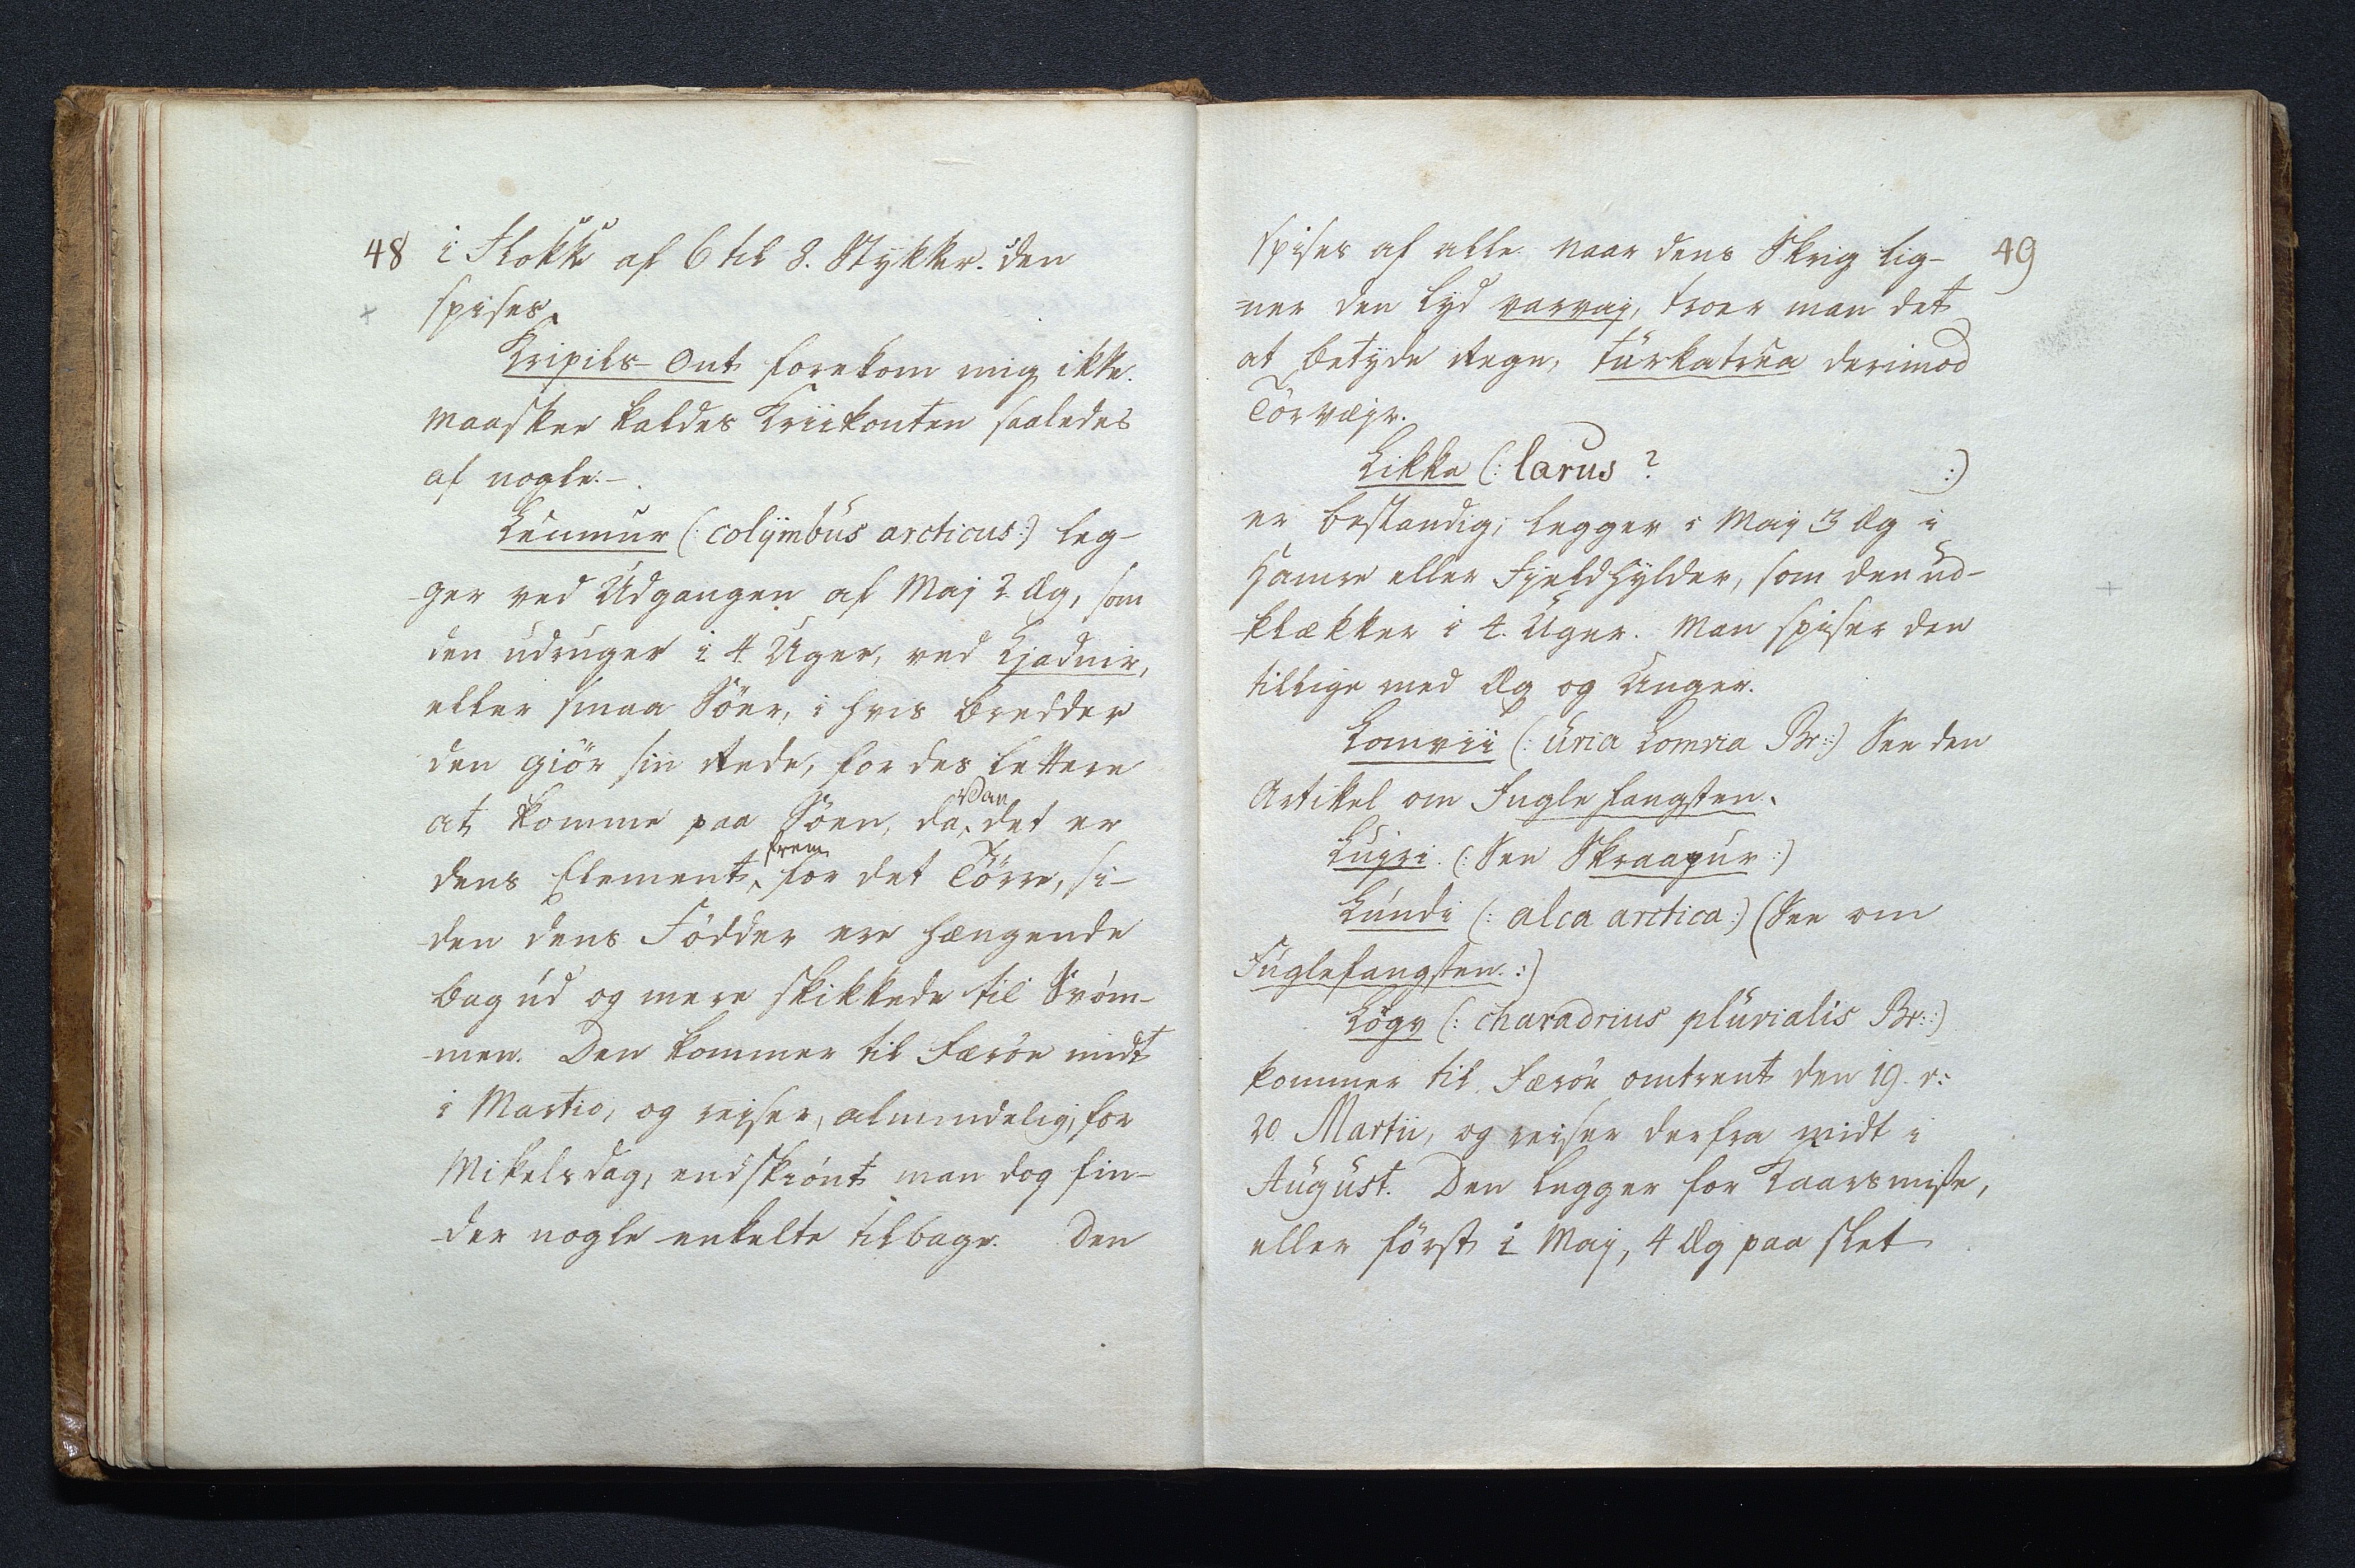 48
i Flokke af 6 til 8. Stykker. den
spises.
Kripils-Ont forekom mig ikke.
Maaskee kaldes Kriikonten saaledes
af nogle.-
Leumur (: colÿmbus arcticus:) leg-
ger ved Udgangen af Maj 2 Æg, som
den udruger i 4 Uger, ved Kjadnir,
eller smaa Söer, i hvis Bredder
den giör sin Rede, for des lettere
at komme paa Söen, da sdan det er
dens Element, frem for det Törre, si-
den dens Födder ere hængende
bag ud og mere skikkede til Svöm-
men. Den kommer til Færöe midt
i Martio, og reiser, almindelig, for
Mikelsdag, endskiönt man dog fin-
der nogle enkelte tilbage. Den
49
spises af alle. Naar dens Skrig lig-
ner den Lyd varvaj, troer man det
at betyde Regn, turkatrea derimod
Törveir.
Likka (: larus ? :)
er bestandig; legger i Maj 3 Æg i
Hamre eller Fjeldhylder, som den ud-
klækker i 4. Uger. Man spiser den
tillige med Æg og Unger.
Lomvii (: uria Lomvia Br:) See den
Artikel om Fugle fangsten.
Lujri. (: See Skraapur :)
Lundi (: alca arctica:) (See om
Fuglefangsten. :)
Lögv (: charadrius pluvialis Br::)
kommer til Færöe omtrent den 19. e:
20 Martii, og reiser derfra midt i
August. Den legger for Kaarsmisse,
eller först i Maj, 4 Æg paa slet